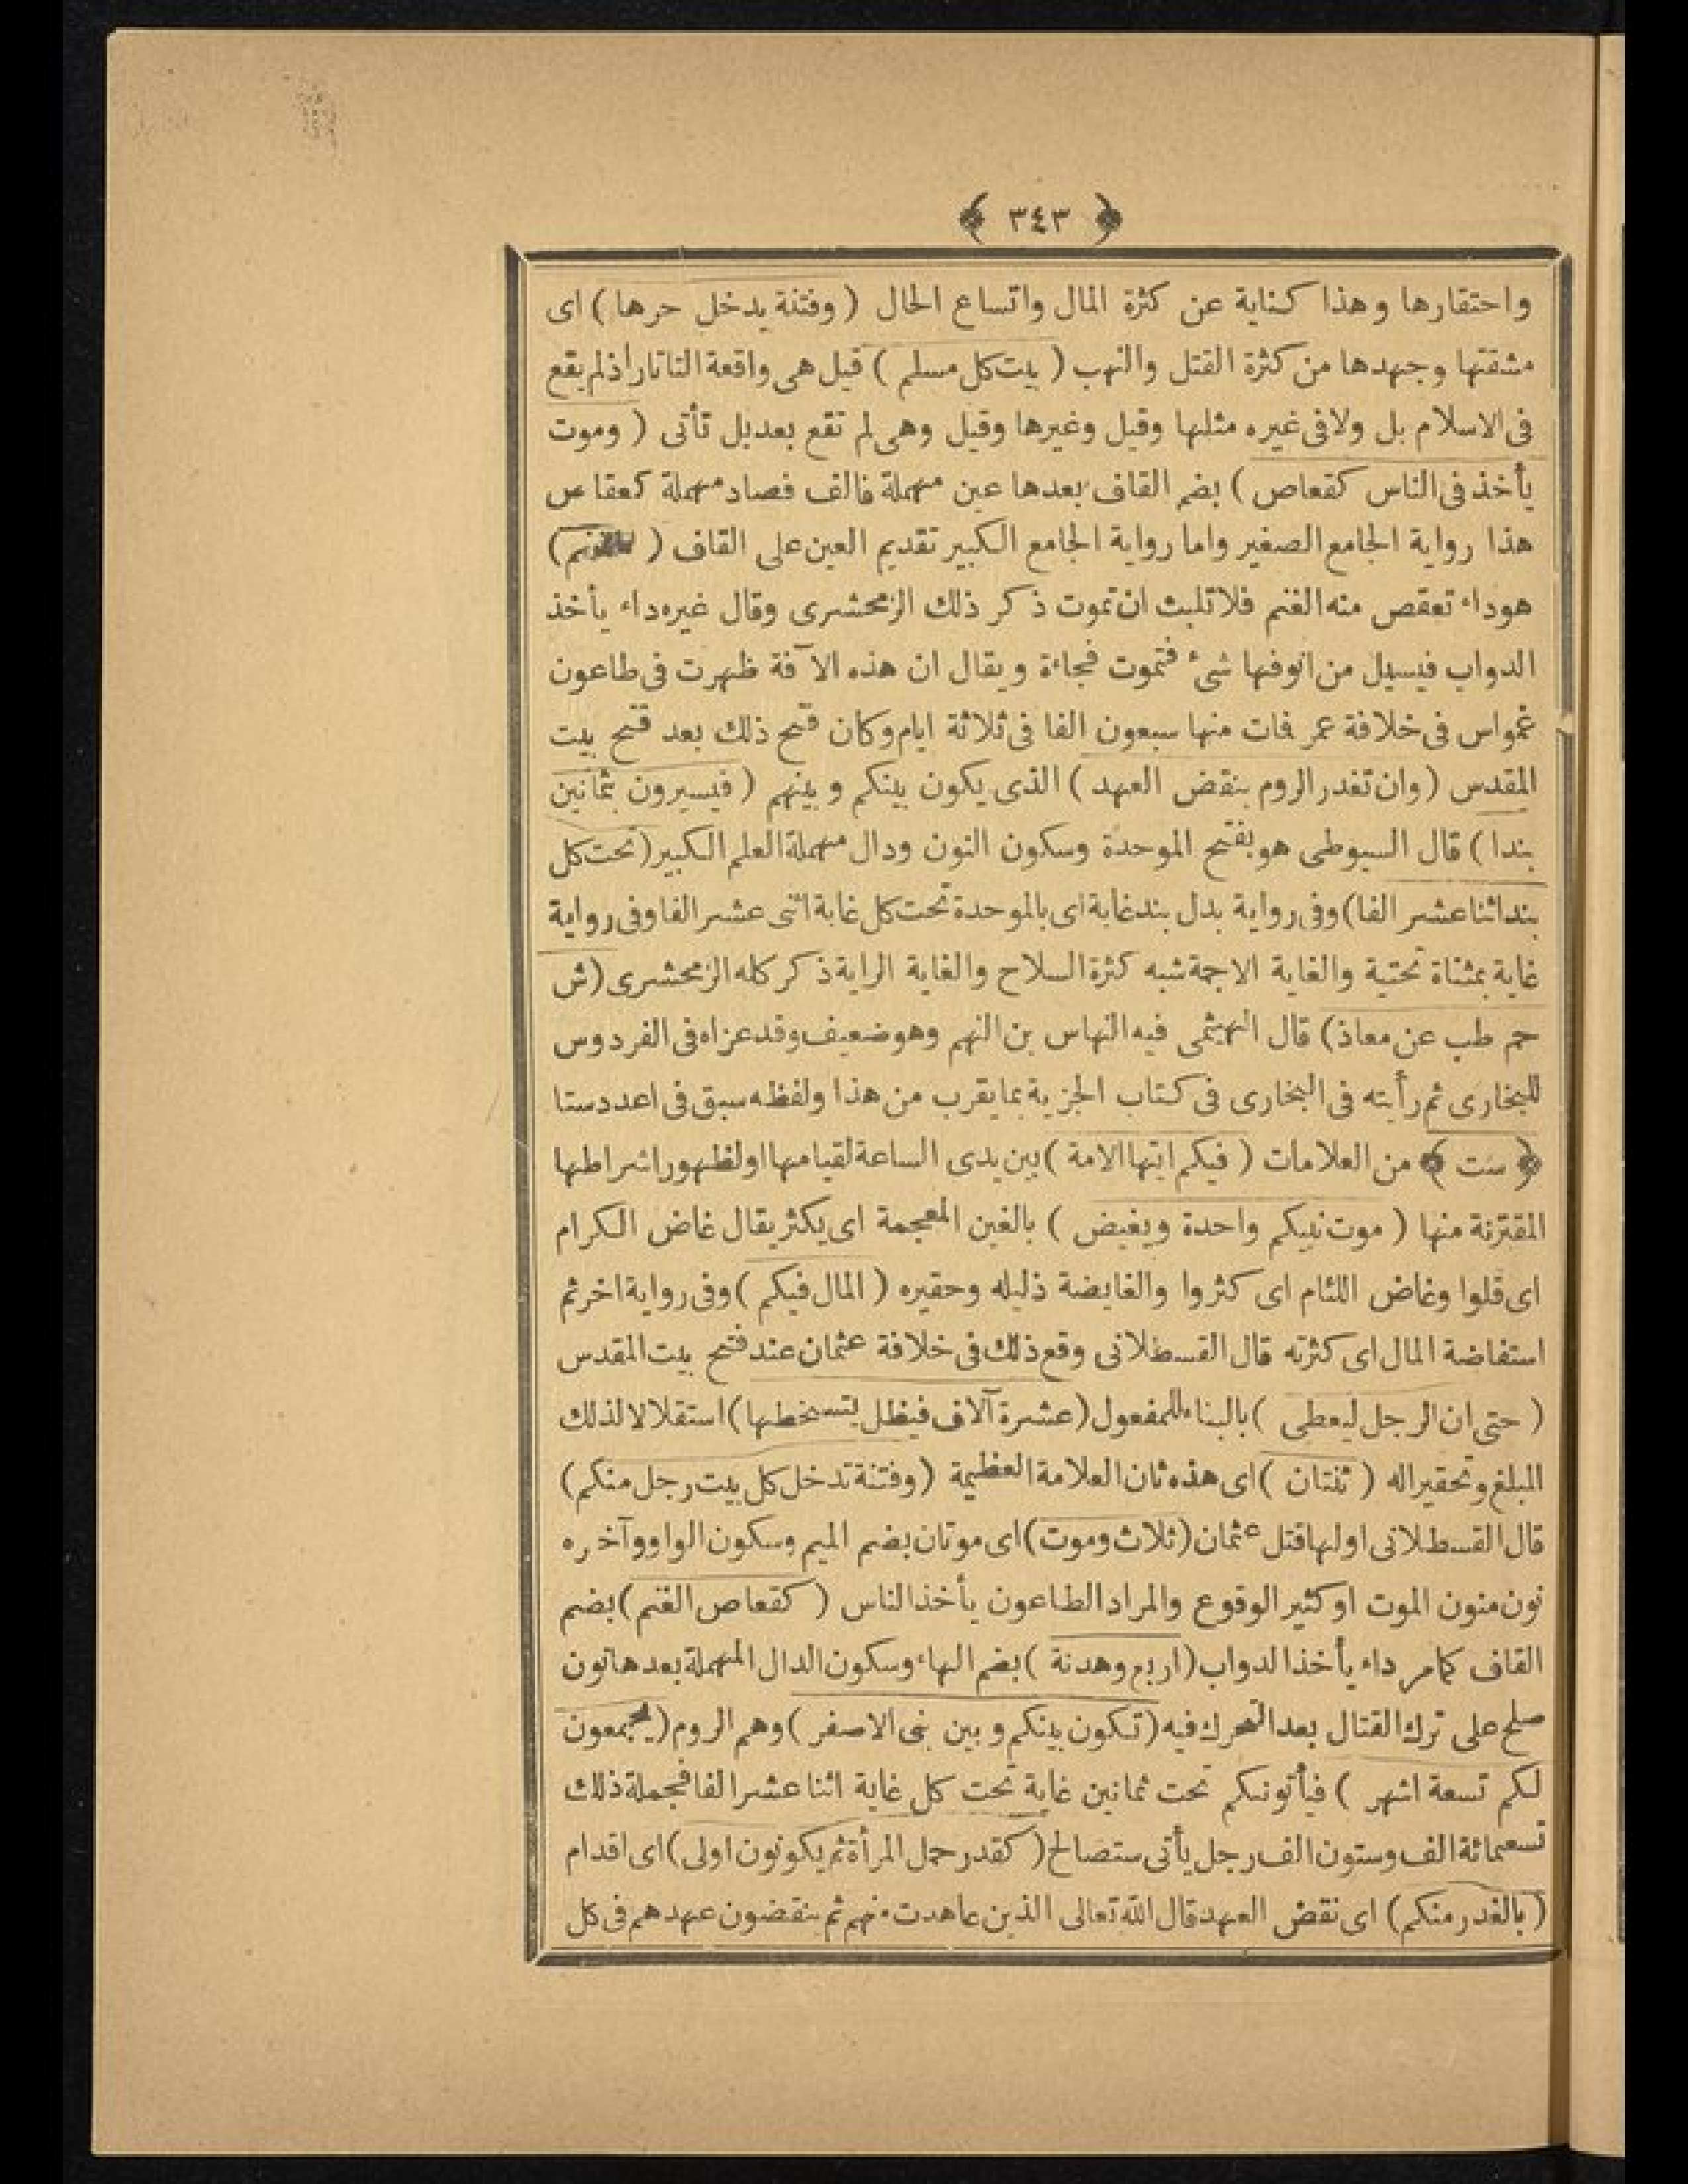 ﴿ ٣٤٣ ﴾
واحتقارها وهذا كناية عن كثرة المال واتساع الحال (وفتنة يدخل حرها) اى
مشقتها وجهدها من كثرة القتل والنهب (بيت كل مسلم) قيل هى واقعة التاتار اذ لم يقع
فى الاسلام بل ولا فى غيره مثلها وقيل وغيرها وقيل وهى لم تقع بعد بل تأتى (وموت
يأخذ فى الناس كقعاص) بضم القاف بعدها عين مهملة فالف فصاد مهملة كعقاص
هذا رواية الجامع الصغير واما رواية الجامع الكبير تقديم العين على القاف ( )
هو داء تعقص منه الغنم فلا تلبث ان تموت ذكر ذلك الزمخشرى وقال غيره داء يأخذ
الدواب فيسيل من انوفها شىء فتموت فجاءة ويقال ان هذه الآفة ظهرت فى طاعون
عمواس فى خلافة عمر فات منها سبعون الفا فى ثلاثة ايام وكان فتح ذلك بعد فتح بيت
المقدس (وان تغدر الروم بنقض العهد) الذى يكون بينكم وبينهم (فيسيرون بثمانين
بندا) قال السيوطى هو بفتح الموحدة وسكون النون ودال مهملة العلم الكبير (تحت كل
بند اثنا عشر الفا) وفى رواية بدل بند غابة اى بالموحدة تحت كل غابة اثنى عشر الفا وفى رواية
غاية بمثناة تحتية والغاية الاجمة شبه كثرة السلاح والغاية الراية ذكر كله الزمخشرى (ش
حم طب عن معاذ) قال الهيثمى فيه النهاس بن النهم وهو ضعيف وقد عزاه فى الفردوس
للبخارى ثم رأيته فى البخارى فى كتاب الجزية بما يقرب من هذا ولفظه سبق فى اعدد ستا
﴿ ست ﴾ من العلامات (فيكم ايتها الامة) بين يدى الساعة لقيامها او لظهور اشراطها
المقترنة منها (موت نبيكم واحدة ويغيض) بالغين المعجمة اى يكثر يقال غاض الكرام
اى قلوا وغاض اللئام اى كثروا والغايضة ذليله وحقيره (المال فيكم) وفى رواية اخر ثم
استفاضة المال اى كثرته قال القسطلانى وقع ذلك فى خلافة عثمان عند فتح بيت المقدس
(حتى ان الرجل ليعطى) بالبناء للمفعول (عشرة آلاف فيظل يتسخطها) استقلالا لذلك
المبلغ وتحقيرا له (ثنتان) اى هذه ثان العلامة العظيمة (وفتنة تدخل كل بيت رجل منكم)
قال القسطلانى اولها قتل عثمان (ثلاث وموت) اى موتان بضم الميم وسكون الواو وآخره
نون منون الموت او كثير الوقوع والمراد الطاعون يأخذ الناس (كقعاص الغنم) بضم
القاف كمامر داء يأخذ الدواب (اربع وهدنة) بضم الهاء وسكون الدال المهملة بعدها نون
صلح على ترك القتال بعد التحرك فيه (تكون بينكم وبين بنى الاصفر) وهم الروم (يجمعون
لكم تسعة اشهر) فيأتونكم تحت ثمانين غاية تحت كل غاية اثنا عشر الفا فجملة ذلك
تسعمائة الف وستون الف رجل يأتى ستصالح (كقدر حمل المرأة ثم يكونون اولى) اى اقدام
(بالغدر منكم) اى نقض العهد قال الله تعالى الذين عاهدت منهم ثم ينقضون عهدهم فى كل